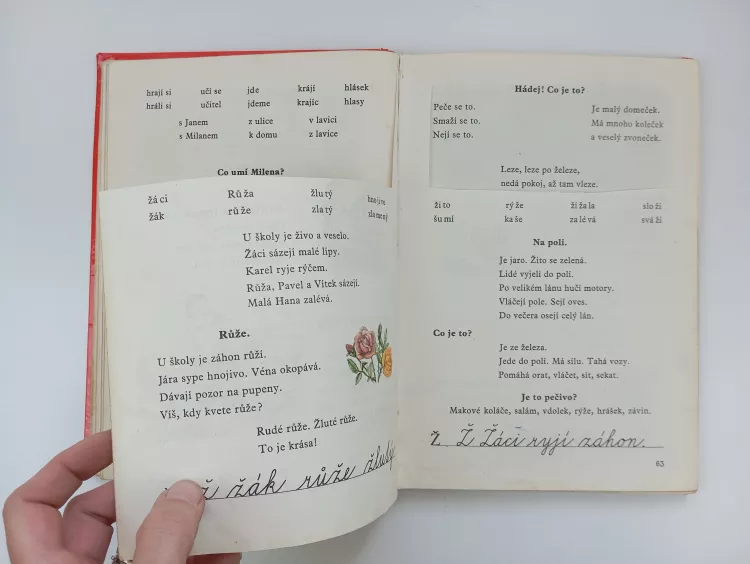 hrají si učí se jde krájí hlásek
hráli si učitel jdeme krajíc hlasy
s Janem z ulice v lavici
s Milanem k domu z lavice
Co umí Milena?
žáci Růža žlutý hnojivo
žák růže zlatý zlomený
U školy je živo a veselo.
Žáci sázejí malé lípy.
Karel ryje rýčem.
Růža, Pavel a Vítek sázejí.
Malá Hana zalévá.
Růže.
U školy je záhon růží.
Jára sype hnojivo. Véna okopává.
Dávají pozor na pupeny.
Víš, kdy kvete růže?
Rudé růže. Žluté růže.
To je krása!
ž žák růže žlutý
Hádej! Co je to?
Peče se to.
Smaží se to.
Nejí se to.
Je malý domeček.
Má mnoho koleček
a veselý zvoneček.
Leze, leze po železe,
nedá pokoj, až tam vleze.
žito rýže žížala složí
šumí kaše zalévá sváží
Na poli.
Je jaro. Žito se zelená.
Lidé vyjeli do polí.
Po velikém lánu hučí motory.
Vláčejí pole. Sejí oves.
Do večera osejí celý lán.
Co je to?
Je ze železa.
Jede do polí. Má sílu. Tahá vozy.
Pomáhá orat, vláčet, sít, sekat.
Je to pečivo?
Makové koláče, salám, vdolek, rýže, hrášek, závin.
Ž Ž Žáci ryjí záhon.
63